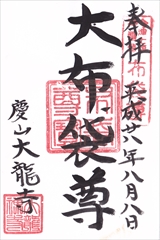 奉拝
平成廿八年八月八日
大布袋尊
慶山大龍寺